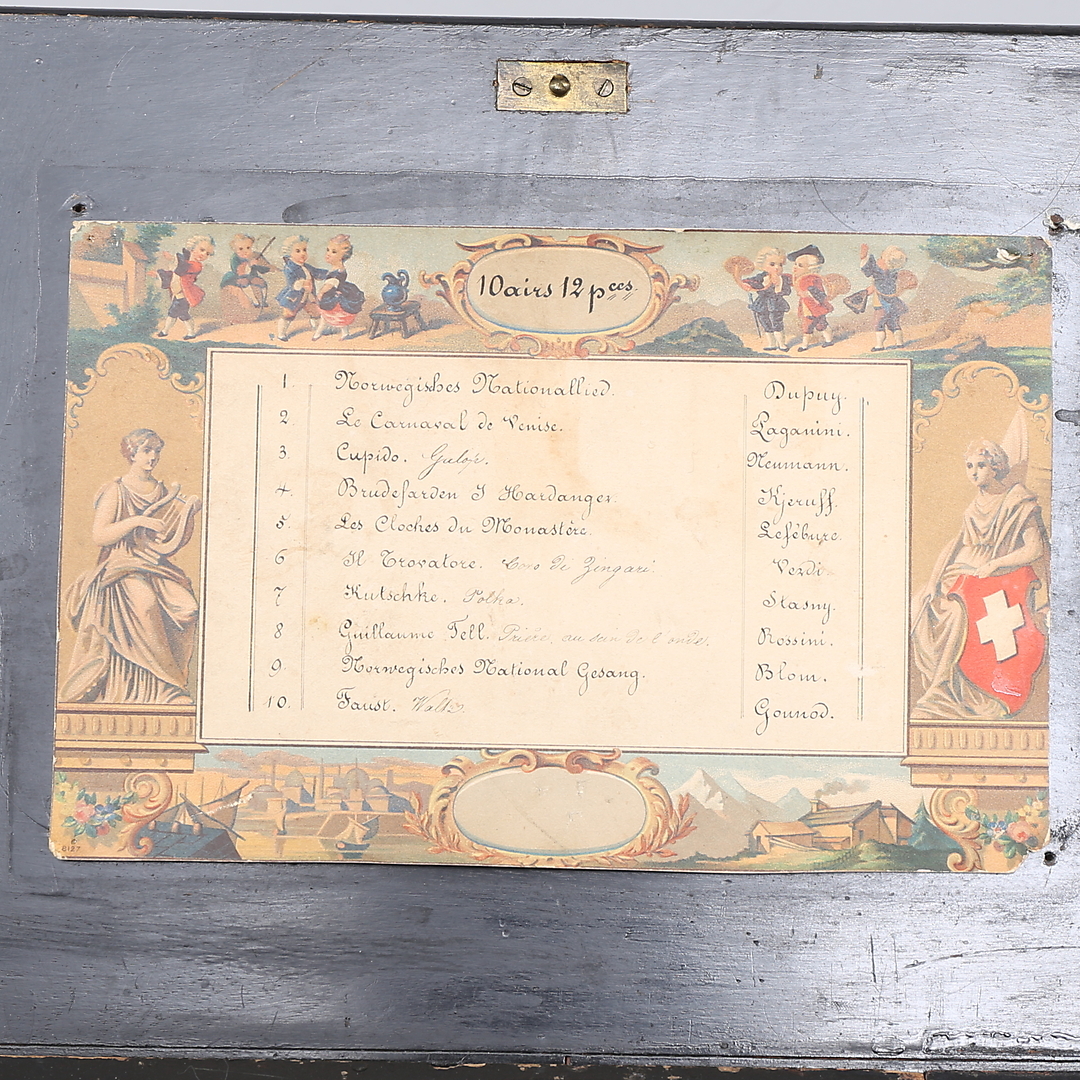 10 airs 12 pces.
1. Norwegisches Nationallied. Dupuy.
2. Le Carnaval de Venise. Paganini.
3. Cupido. Galop. Neumann.
4. Brudefarden I Hardanger. Kjerulf.
5 Les Cloches du Monastère. Lefébure.
6 Il Trovatore. Coro di Zingari. Verdi
7 Kutschke. Polka. Stasny.
8 Guillaume Tell. Prière, au sein de l'onde. Rossini.
9. Norwegisches National Gesang. Blom.
10. Faust. Waltz Gounod.
8127